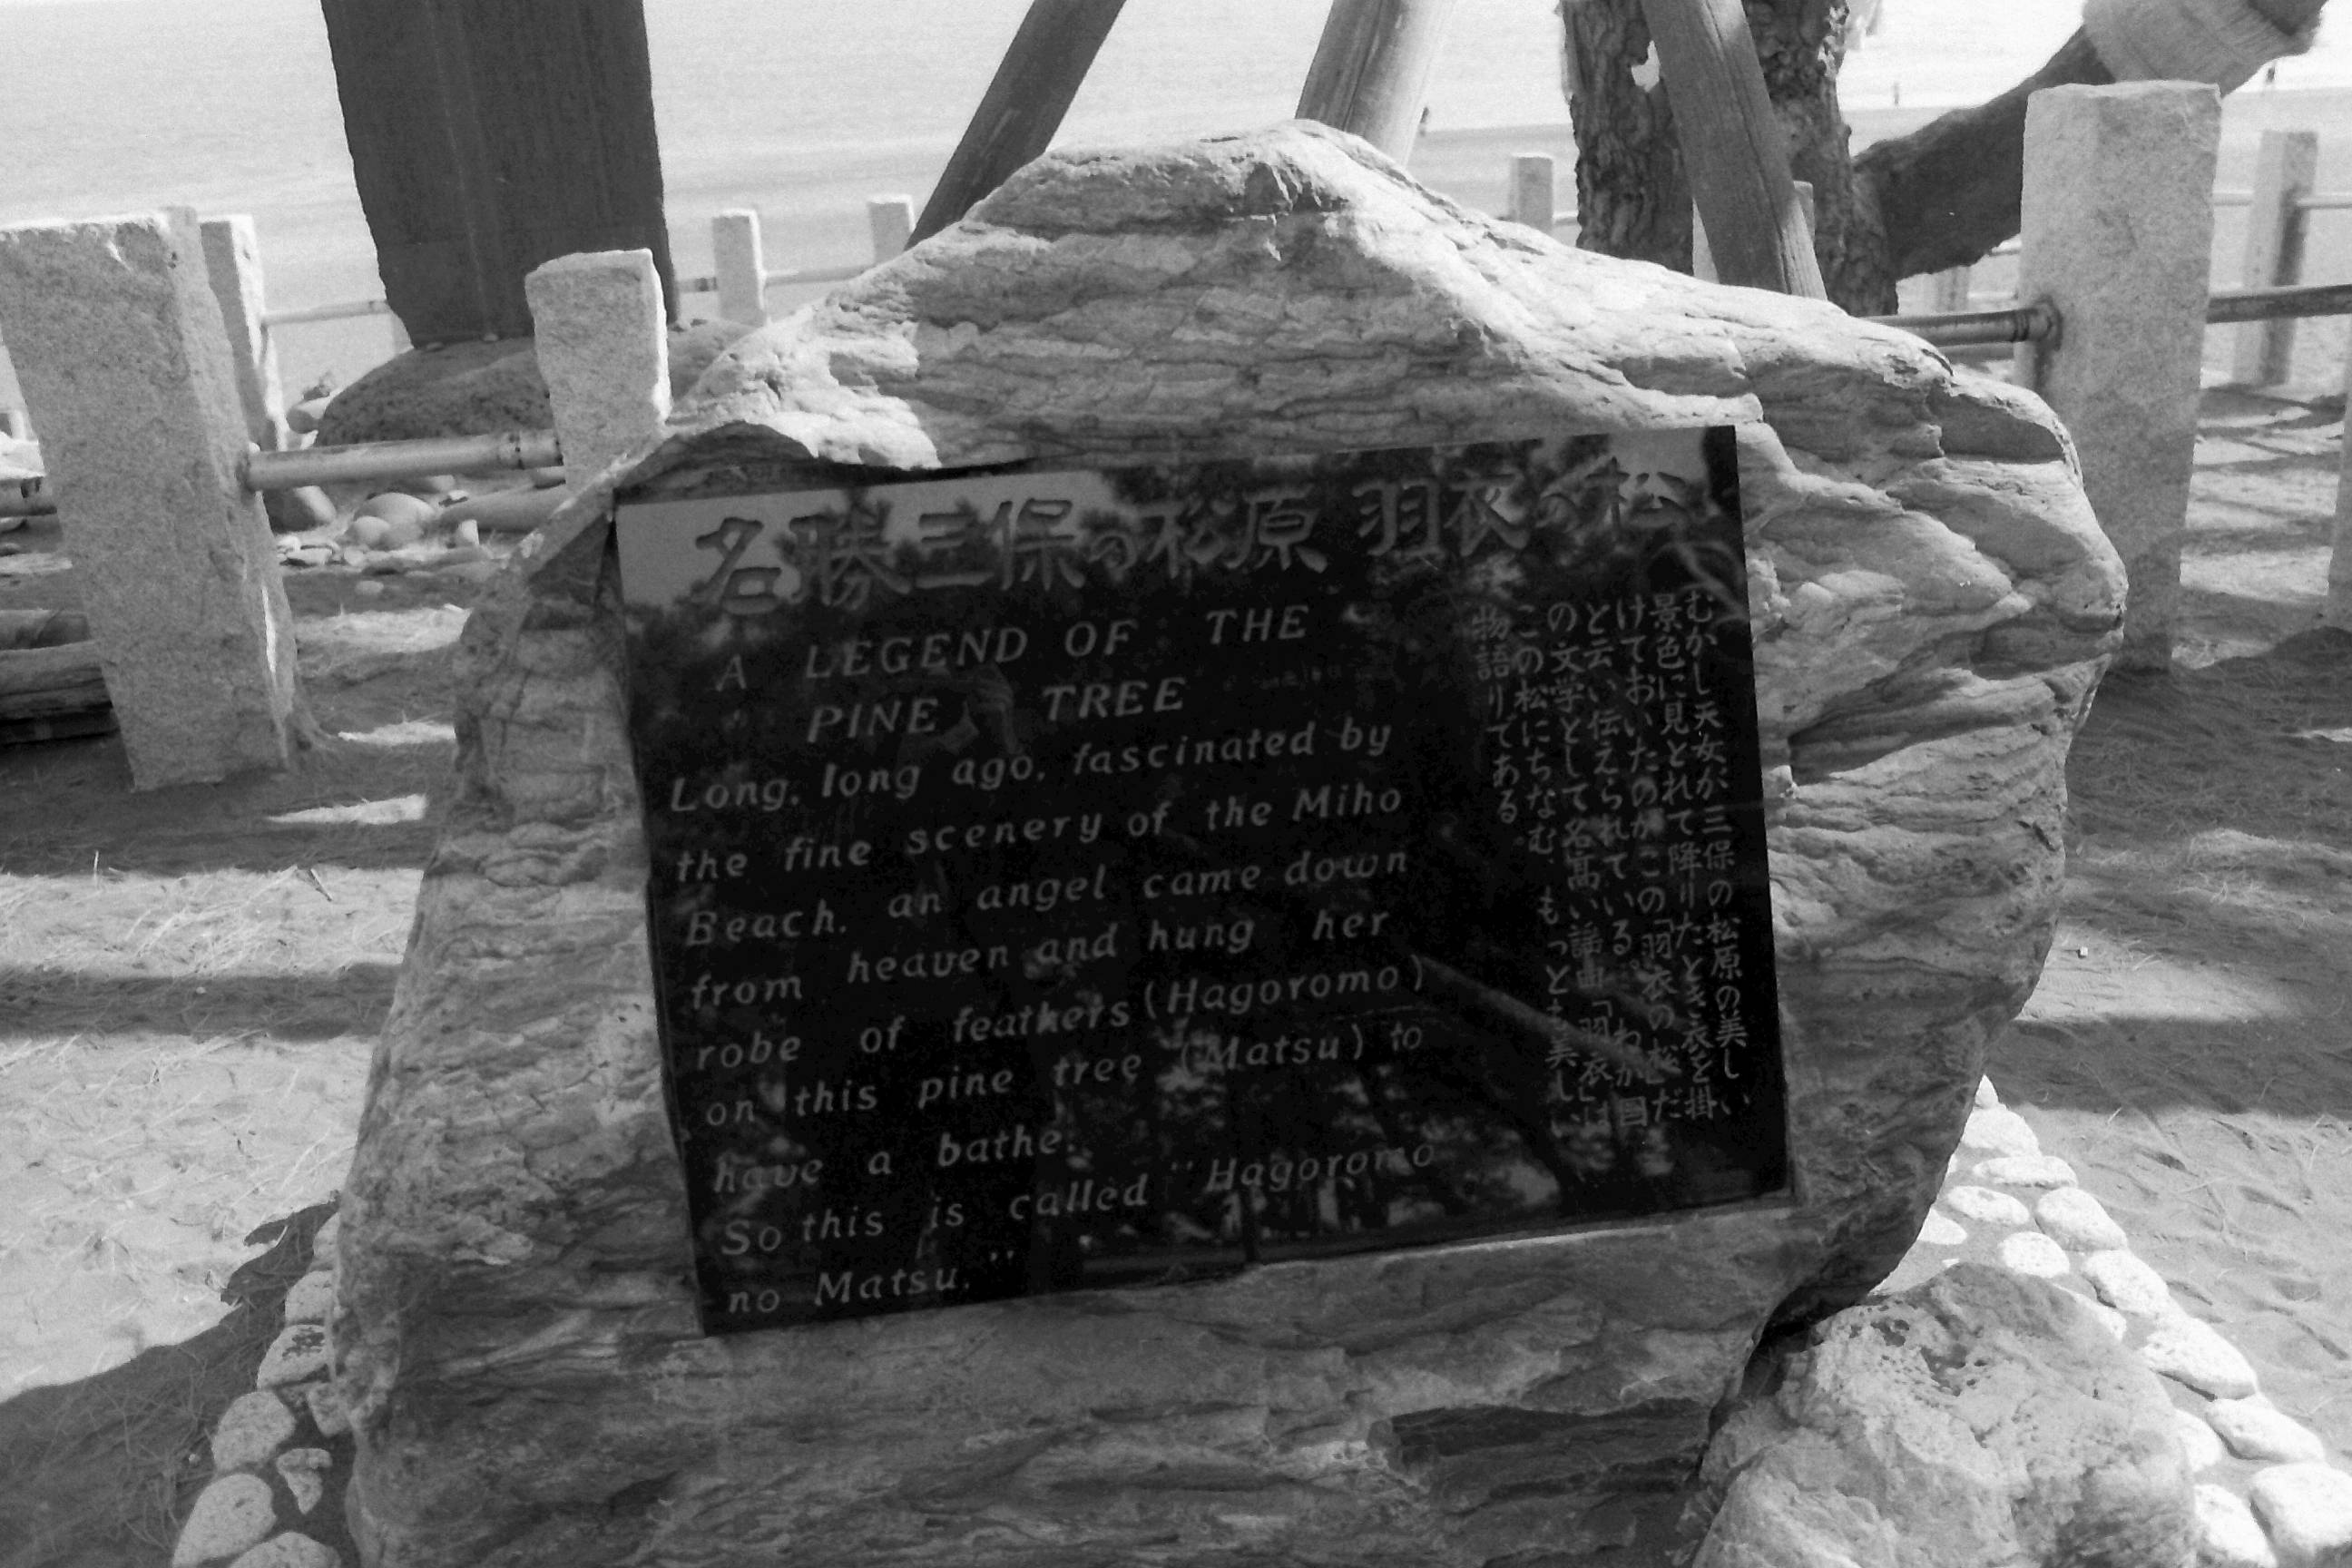 名勝三保の松原 羽衣の松
A LEGEND OF THE
PINE TREE
Long, long ago, fascinated by
the fine scenery of the Miho
Beach, an angel came down
from heaven and hung her
robe of feathers (Hagoromo)
on this pine tree (Matsu) to
have a bathe.
So this is called "Hagoromo
no Matsu."
むかし天女が三保の松原の美しい
景色に見とれて降りたとき衣を掛
けておいたのがこの「羽衣の松」だ
と云い伝えられている。わが国
の文学として名高い謡曲「羽衣」は
この松にちなむ、もっとも美しい
物語りである